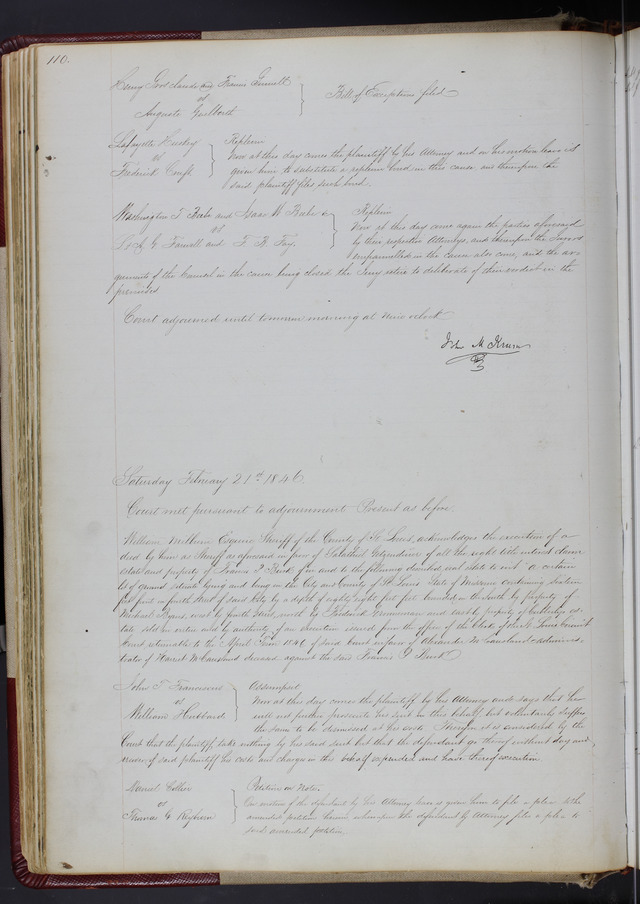 110.
Henry Goodlande and Francis Gunnell
vs
Auguste Guelberth
Bill of Exceptions filed
Lafayette Huskey
vs
Frederick Craft
Replevin
Now at this day comes the plaintiff by his Attorney and on his motion leave is
given him to substitute a replevin bond in this cause and thereupon the
said plaintiff files such bond.
Washington T. and Isaac W.
vs
G Farwell and F. R. Fay.
Replevin
Now at this day come again the parties aforesaid
by their respective Attorneys, and thereupon the Jurors
empannelled in the cause also come, and the ar-
guments of the Counsel in the cause being closed the Jury retire to deliberate of their verdict in the
premises
Court adjourned until tomorrow morning at nine oclock
John M. Krum
Saturday February 21st 1846.
Court met pursuant to adjournment Present as before.
William Milburn Esquire Sheriff of the County of St Louis, acknowledges the execution of a
deed by him as Sheriff as aforesaid in favor of of all the right title interest claim
estate and property of Francis P. in and to the following described real estate to wit "a certain
lot of ground situate lying and being in the City and County of St Louis State of Missouri containing Sixteen
feet front on fourth Street of said City by a depth of eighty eight feet bounded on the South by property of
Michael Byrns, west by fourth Street, north by and east by property of es-
tate sold in virtue and by authority of an execution issued from the office of the Clerk of the St Louis Circuit
Court returnable to the April Term 1846 of said Court in favor of Alexander McCausland administra-
trator of Harriet McCausland deceased against the said Francis P.
John T. Franciscus
vs
William Hubbard
Assumpsit
Now at this day comes the plaintiff by his Attorney and says that he
will not further prosecute his suit in this behalf, but voluntarily suffers
the same to be dismissed at his costs. Therefore it is considered by the
Court that the plaintiff take nothing by his said suit but that the defendant go thereof without day and
recover of said plaintiff his costs and charges in this behalf expended and have thereof execution.
Daniel Collier
vs
Thomas G
Petition on Note.
On motion of the defendant by his Attorney leave is given him to file a plea to the
amended petition herein whereupon the defendant by Attorney files a plea to
said amended petition.